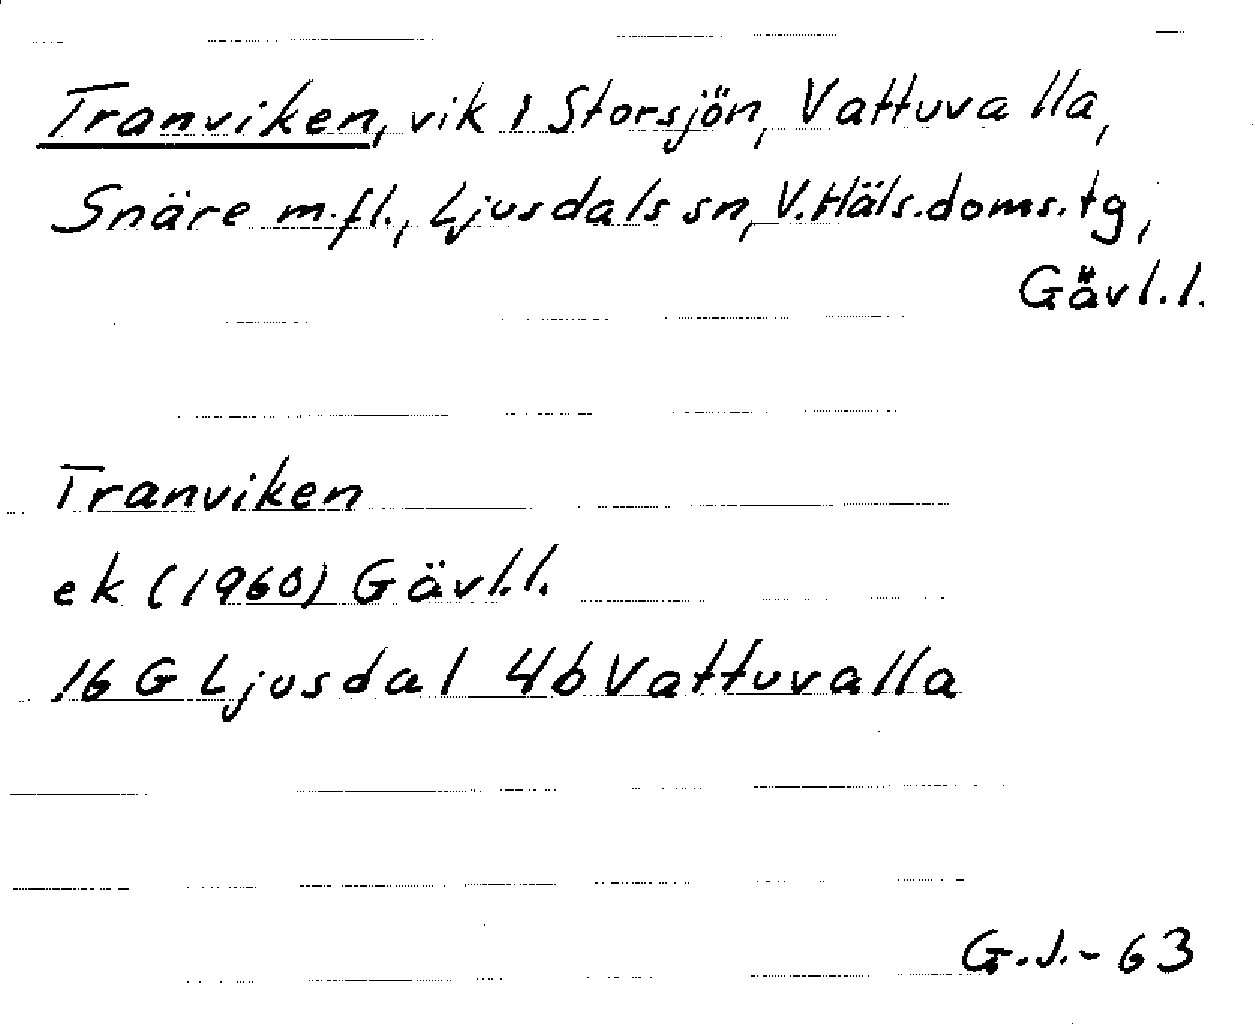 Tranviken, vik i Storsjön, Vattuvalla,
Snäre m.fl., Ljusdals sn, V.Häls.doms.tg,
Gävl.l.
Tranviken
ek (1960) Gävl.l.
16 G Ljusdal 4b Vattuvalla
G.J.-63